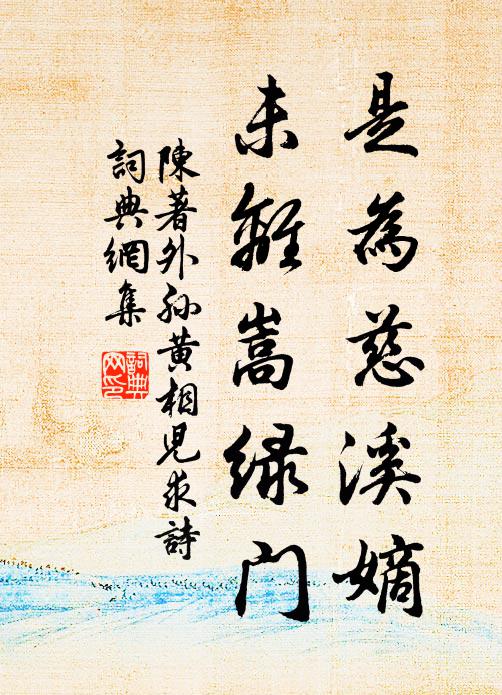 是為慈溪嫡
未離嵩緑門
陳著外孫黄相児求詩
詞典網集
詞典网印